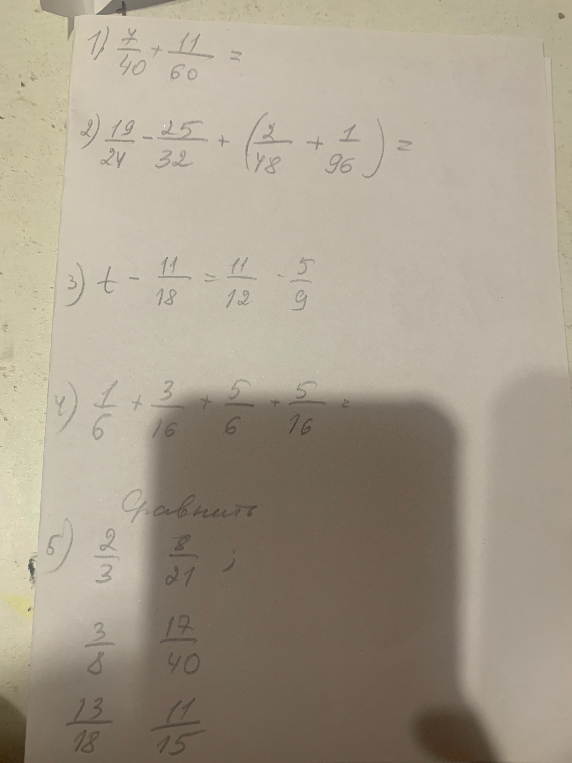 1) 7/40 + 11/60 =
2) 19/24 - 25/32 + (2/48 + 1/96) =
3) t - 11/18 = 11/12 - 5/9
4) 1/6 + 3/16 + 5/6 + 5/16 =
Сравнить
5) 2/3 8/21 ;
3/8 17/40
13/18 11/15